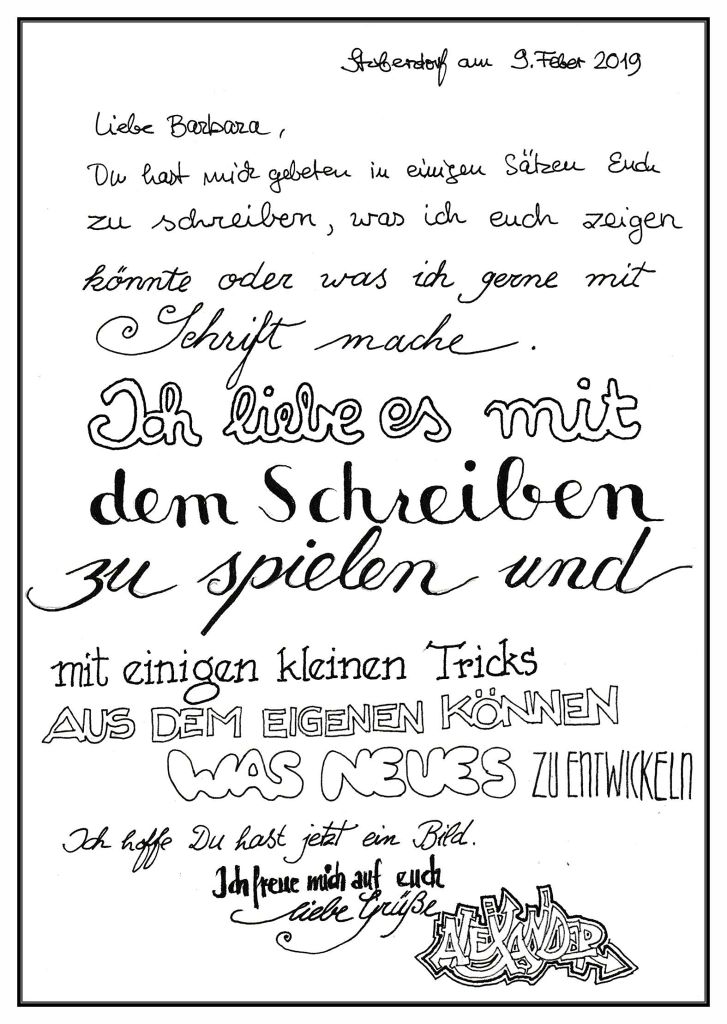 am 9. Feber 2019
Liebe Barbara,
Du hast mich gebeten in einigen Sätzen Euch
zu schreiben, was ich euch zeigen
könnte oder was ich gerne mit
Schrift mache.
Ich liebe es mit
dem Schreiben
zu spielen und
mit einigen kleinen Tricks
AUS DEM EIGENEN KÖNNEN
WAS NEUES ZU ENTWICKELN
Ich hoffe Du hast jetzt ein Bild.
Ich freue mich auf euch
liebe Grüße
ALEXANDER